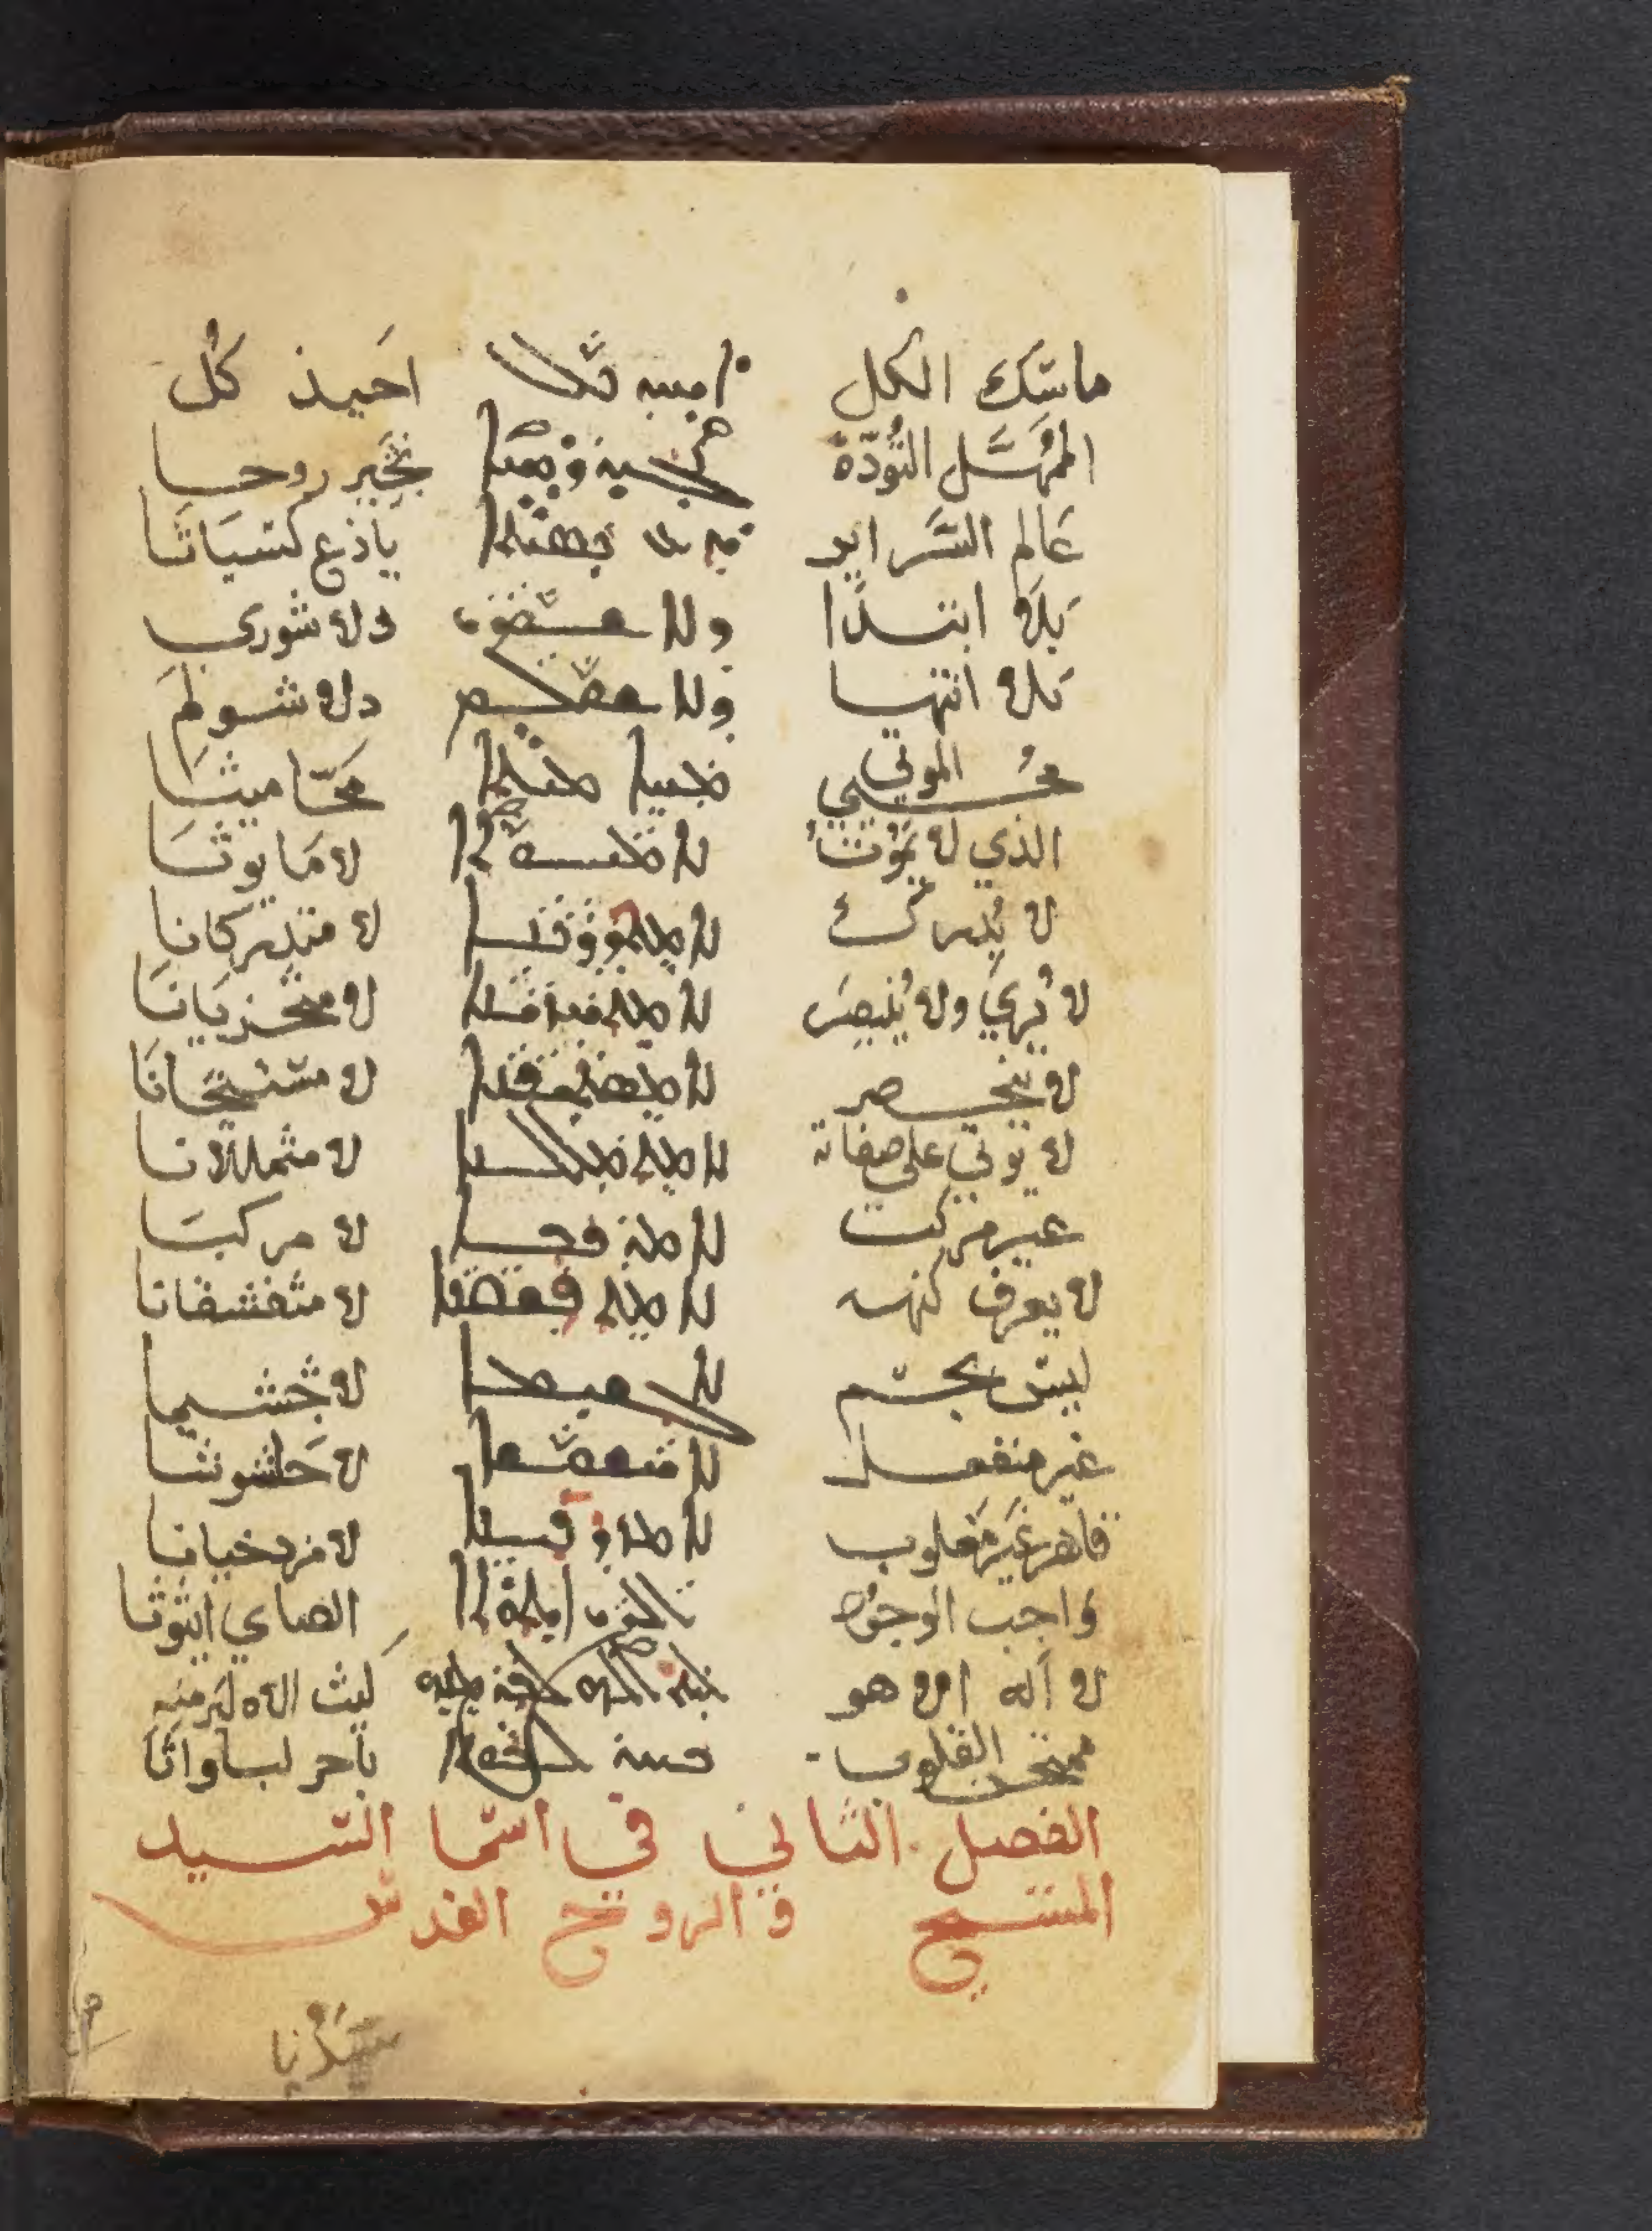 ماسَك الكل ܐܚܝܕ ܟܠ احَيذ كُل
المُهَسَّل التُؤدّة ܢܓܝܪ ܪܘܚܐ نجَّير روحا
عَالم السَراير ܝܕܥ ܟܣܝܬܐ ياذع كسيَاثا
بَلاَ ابتدًا ܕܠܐ ܫܘܪܝ دلا شوري
بَلا انتها ܕܠܐ ܫܘܠܡ دلا شولَم
مُحيي الموتي ܡܚܐ ܡܝܬܐ مَحّا ميثَا
الذي لا يَموُت ܠܐ ܡܝܘܬܐ لا مَايوثَا
لا يُدرك ܠܐ ܡܬܕܪܟܢܐ لا متدركانا
لا يُريَ ولا يُبصَر ܠܐ ܡܬܚܙܝܢܐ لا متحزيَانَا
لا ينحصر ܠܐ ܡܣܬܝܟܢܐ لا مستيخَانَا
لا يوتي علي صفاته ܠܐ ܡܬܡܠܠܢܐ لا مثمللانا
غير مركب ܠܐ ܡܪܟܒܐ لا مركبَا
لا يعرف كنهه ܠܐ ܡܬܓܫܦܢܐ لا مثغشفانا
ليسَ بجسَم ܠܐ ܓܫܝܡܐ لا جُشيما
غير منفعل ܠܐ ܚܫܘܫܐ لا حَاشوشا
قاهر غَير مَغلوب ܠܐ ܡܙܕܟܝܢܐ لا مزدخيانا
وَاجب الوجوُد ܐܠܨܝ ܐܝܬܘܬܐ الصاي ايثوثا
لا اله الا هو ܠܝܬ ܐܠܗ ܠܒܪ ܡܢܗ لَيث الاه لبَر منه
ممتحن القلوب ܒܚܪ ܠܒܘܬܐ باحر لباواثَا
الفصل الثاني في اسَما السَيد
المسَيح والروح القدسَ
سَيّدُنا